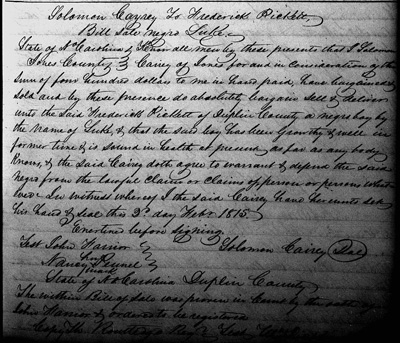 Solomon Cayrey To Frederick Pickett
Bill Sale Negro Luke
State of N Carolina & Know all men by these presents that I Solomon
Jones County & Cairey of Jones for and in consideration of the
Sum of four hundred dollars to me in hand paid, have bargained
Sold and by these presence do absolutely bargain sell & deliver
unto the Said Frederick Pickett of Duplin County a negro boy by
the name of Luke, & that the said boy has been Growthy & well in
former time & is sound in health at present as far as any body
Knows, & the Said Cairey doth agree to warrant & defend the said
negro from the lawful Claim or Claims of person or persons what
ever In witness whereof I the said Cairey have hereunto set
his hand & Seal this 3d day Febr 1815.
before signing
Test John Warrior Solomon Cairey Seal
Nancy
mark
State of No Carolina Duplin County
The within Bill of Sale was proven in Court by the oath of
John Warrior & ordered to be registered
Copy Test